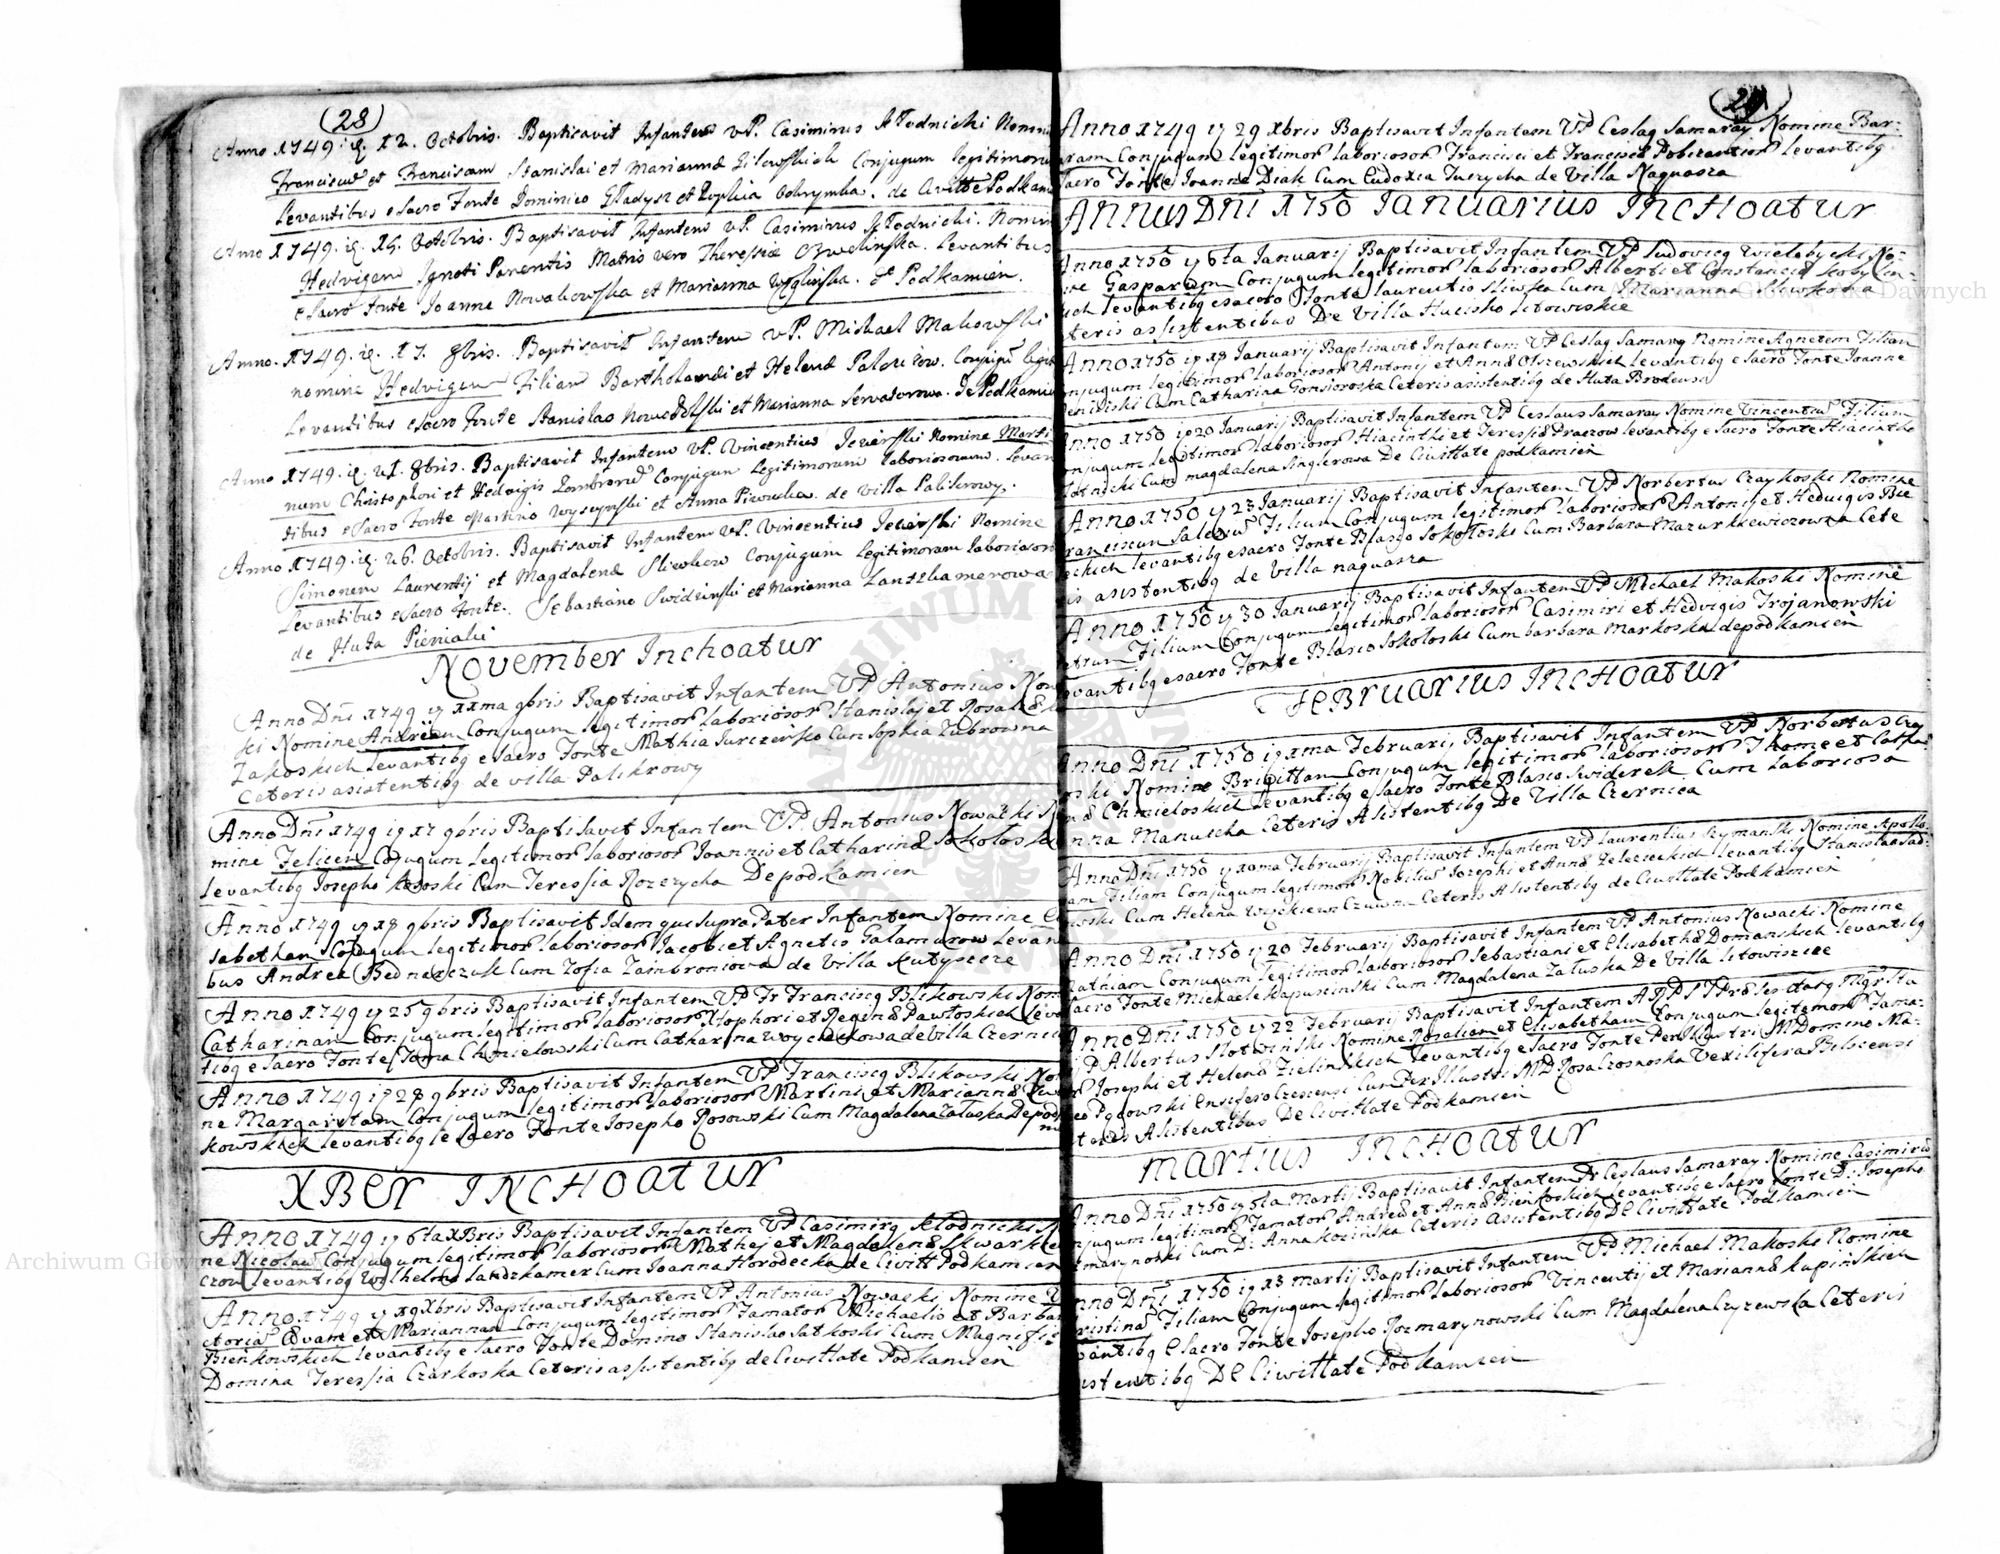 (28)
Anno 1749. ię. 12. Octobris. Baptisavit Infantem VP. Casimirus Kłodnicki Nomine
Franciscū et Franciscam Stanislai et Mariannæ Conjugum legitimorum
Levantibus e Sacro Fonte Dominico Gładysz et Zophia de Podkamień
Anno 1749. ię. 15. Octobris. Baptisavit Infantem VP. Casimirus Kłodnicki. Nomine
Hedvigem Ignoti Parentis Matris vero Theressiæ Levantibus
e Sacro Fonte Joanne Nowakowska et Marianna de Podkamień.
Anno. 1749. ię. 17. 8bris. Baptisavit Infantem VP. Michael Makowski
nomine Hedvigem Filiam Bartholomæi et Helenæ Conjugū
Levantibus e Sacro Fonte Stanislao et Marianna de Podkamień
Anno 1749. ię. 21. 8bris. Baptisavit Infantem VP. Vincentius Jezierski Nomine Marti
num Christophori et Hedvigis Conjugum Legitimorum laboriosorum. Levan
tibus e Sacro Fonte Martino et Anna de Villa Palikrowy.
Anno 1749. ię. 26. Octobris. Baptisavit Infantem VP. Vincentius Jezierski Nomine
Simonem Laurentij et Magdalenæ Conjugum Legitimorum laboriosorum
Levantibus e Sacro Fonte. Sebastiano Swidzinski et Marianna Lantzkamerowa
de Huta Pieniaki
November Inchoatur
Anno Dnī 1749 iy xxma 9bris Baptisavit Infantem VP Antonius Now
ki Nomine Andream Conjugum legitimor laboriosor Stanislaj et Rosaliæ
Zakoskich levantibq e Sacro Fonte Mathia Jurczensko Cum Sophia Zubrowna
Ceteris asistentibq de villa Palikrowy
Anno Dnī 1749 iy 17 9bris Baptisavit Infantem VP. Antonius Nowacki No
mine Felicem Conjugum legitimor laboriosor Joannis et Catharinæ Sokolos
levantibq Josepho Cum Teressia Rozezycha De podkamien
Anno 1749 iy 18 9bris Baptisavit Idem qui supra Pater Infantem Nomine Eli
sabetham Conjugum legitimor laboriosor Jacobi et Agnetis Galamurow Levan
bus Andrea Bednarczuk Cum Zofia Zambroniowa de Villa
Anno 1749 iy 25 9bris Baptisavit Infantem VP Fr Franciscq Blikowski Nom
Catharinam Conjugum legitimor laboriosor Xtophori et Reginæ Pawłoskich Leva
tibq e Sacro Fonte Toma Chmielowski Cum Catharina Woyciechowa de Villa Czernic
Anno 1749 iy 28 9bris Baptisavit Infantem VP Franciscq Blikowski No
ne Margaritam Conjugum legitimor laboriosor Martini et Mariannæ
kowskich levantibq e Sacro Fonte Josepho Rosowski Cum Magdalena Całuska De pod
XBer Inchoatur
Anno 1749 iy 6ta XBris Baptisavit Infantem VP Casimirq Kłodnicki
ne Nicolaū Conjugum legitimor laboriosor Mathej et Magdalenæ Skwark
czow levantibq Wilhelmo Landzkamer Cum Joanna Horodecka de Civitt Podkamien
Anno 1749 iy 19 Xbris Baptisavit Infantem VP Antonius Nowacki Nomine V
ctoriā Evam et Mariannam Conjugum legitimor Famator Michaelis et Barba
Bienkowskich levantibq e Sacro Fonte Domino Stanislao Satkoski Cum Magnifi
Domina Teressia Czarkoska Ceteris assistentibq de Civittate Podkamien
29
Anno 1749 iy 29 Xbris Baptisavit Infantem VP Ceslaq Samaray Nomine Bar:
aram Conjugum legitimor laboriosor Francisci et Franciscæ levantibq
Sacro Fonte Joanne Diak Cum Eudoxia de Villa Naguasza
Annus Dnī 1750 Januarius Inchoatur
Anno 1750 iy 6ta Januarij Baptisavit Infantem VP Ludovicq Wielobycki No-
ne Gasparum Conjugum legitimor laboriosor Alberti et Constanciæ Kobylin-
ich levantibq e sacro Fonte laurentio Sliwska Cum Marianna Sliwkowa
teris assistentibus De Villa Hucisko Litowiskie
Anno 1750 iy 18 Januarij Baptisavit Infantem VP Ceslaq Samaray Nomine Agnetem Filiam
onjugum legitimor laboriosor Antonij et Annæ Olszewskich levantibq e Sacro Fonte Joanne
Cum Catharina Gonsioroska Ceteris asistentibq de Huta Brodensa
Anno 1750 iy 20 Januarij Baptisavit Infantem VP Ceslaus Samaray Nomine Vincentiū Filium
onjugum legitimor laboriosor Hiacinthi et Teressiæ Praczow levantibq e Sacro Fonte Hiacintho
Cum magdalena Singlerowa De Civittate podkamien
Anno 1750 iy 23 Januarij Baptisavit Infantem VP Norbertus Czaykoski Nomine
ranciscum Salesiū Filium Conjugum legitimor laboriosor Antonij et Hedvigis Bie
eckich levantibq e sacro Fonte Blasio Sokołoski Cum Barbara Mazurkiewiczowna Cete
is asistentibq de Villa naguasza
Anno 1750 iy 30 Januarij Baptisavit Infantem VP Michael Makoski Nomine
etrum Filium Conjugum legitimor laboriosor Casimiri et Hedvigis Trojanowski
evantibq e sacro Fonte Blasio Sokołoski Cum barbara Markoska de podkamien
Februarius Inchoatur
Anno Dnī 1750 iy xma Februarij Baptisavit Infantem VP Norbertus Czay
oski Nomine Brigittam Conjugum legitimor laboriosor Thome et Catha
næ Chmieloskich levantibq e Sacro Fonte Blasio Swiderek Cum laboriosa
nna Manuscha Ceteris Asistentibq De Villa Czernica
Anno Dnī 1750 iy xoma Februarij Baptisavit Infantem VP laurentius Szymanski Nomine Apollo:
am Filiam Conjugum legitimor Nobiliū Josephi et Annæ Zelececkich levantibq Stanislao Sad
owski Cum Helena Ceteris Asistentibq de Civittate Podkamien
Anno Dnī 1750 iy 20 Februarij Baptisavit Infantem VP Antonius Nowacki Nomine
athiam Conjugum legitimor laboriosor Sebastiani et Elisabethæ Domanskich levantibq
Sacro Fonte Michaele Kapuscinski Cum Magdalena Załuska De Villa litowiszcze
Anno Dnī 1750 iy 22 Februarij Baptisavit Infantem
P Albertus Słotwinski Nomine Rosaliam et Elisabetham Conjugum legitimor Fama:
r Josephi et Helenæ Zielinskich levantibq e Sacro Fonte Per Illustri M Domino Ma:
eo Pgłowski Ensifero Czescensi Cum Per Illustri MD Rosa Vexilifera Bilscensi
teris Asistentibus De Civittate Podkamien
Martius Inchoatur
Anno Dnī 1750 iy 5ta Martij Baptisavit Infantem Fr Ceslaus Samaray Nomine Casimirū
onjugum legitimor Famator Andreæ et Annæ Bienkoskich levantibq e Sacro Fonte D: Josepho
zmarynoski Cum D: Anna Kozinska Ceteris asistentibq De Civittate Podkamien
Anno Dnī 1750 iy 13 martij Baptisavit Infantem VP Michael Makoski Nomine
ristinā Filiam Conjugum legitimor laboriosor Vincentij et Mariannæ Kupinskich
vantibq e Sacro Fonte Josepho Rozmarynowski Cum Magdalena Czyzewska Ceteris
istentibq De Civittate Podkamien
Archiwum Główne Akt Dawnych